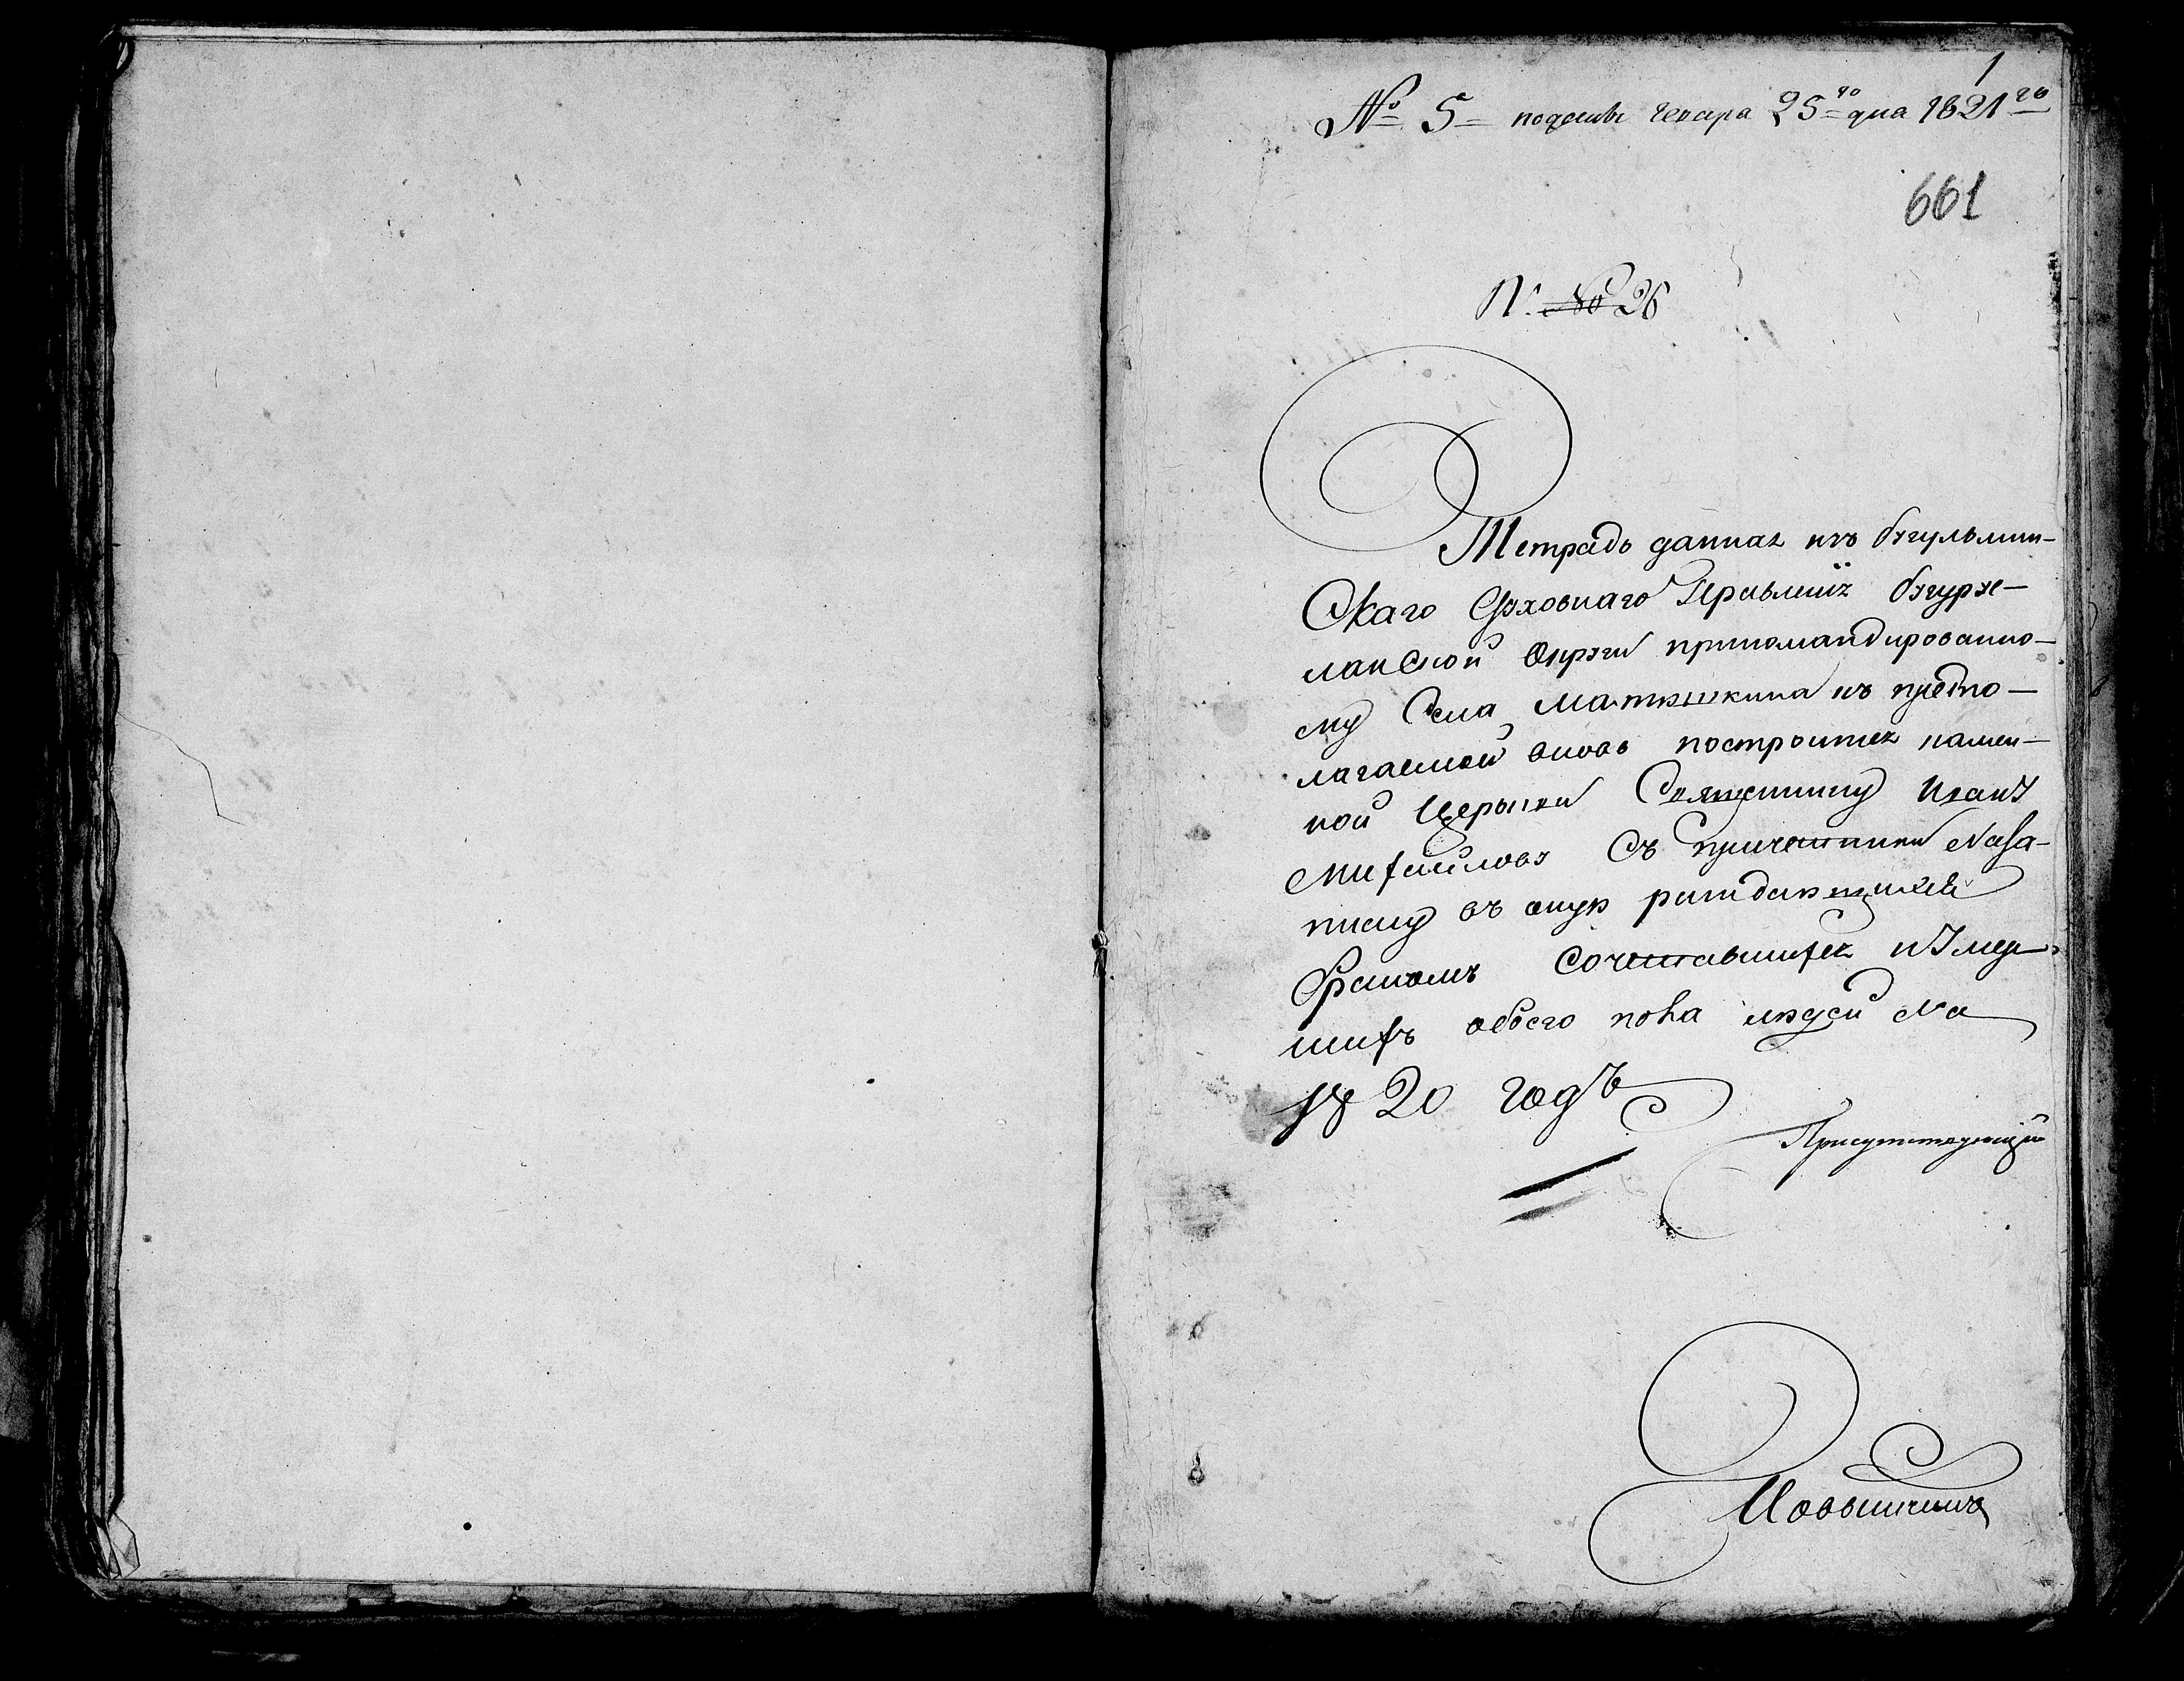 1
№ 5 = генваря 25го дня 1821го
661
N. № 26
Тетрадь данная изъ бугульмин-
скаго Духовнаго Правления бугурус-
ланской округи прикомандированно-
му села Матвушкина къ предпо-
лагаемой вновь построится камен-
ной церькви Священнику Иоанну
Михайлову съ причетники Наза-
писку въ оную раждающихся
Бракомъ сочетавшихся и Умер-
шихъ обоего пола людей На
1820 годъ
Присутствующий